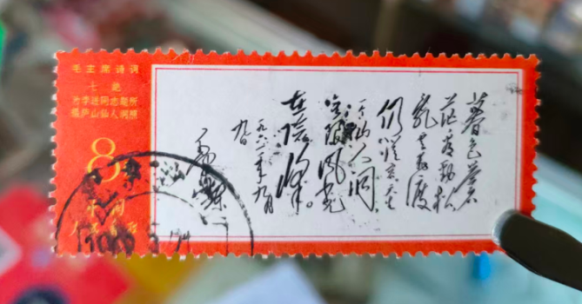 毛主席诗词
七绝
为李进同志题所
摄庐山仙人洞照
8
暮色苍
茫看劲松
乱云飞渡
仍从容天生
一个仙人洞
无限风光
在险峰。
一九六一年九月
九日
毛泽东